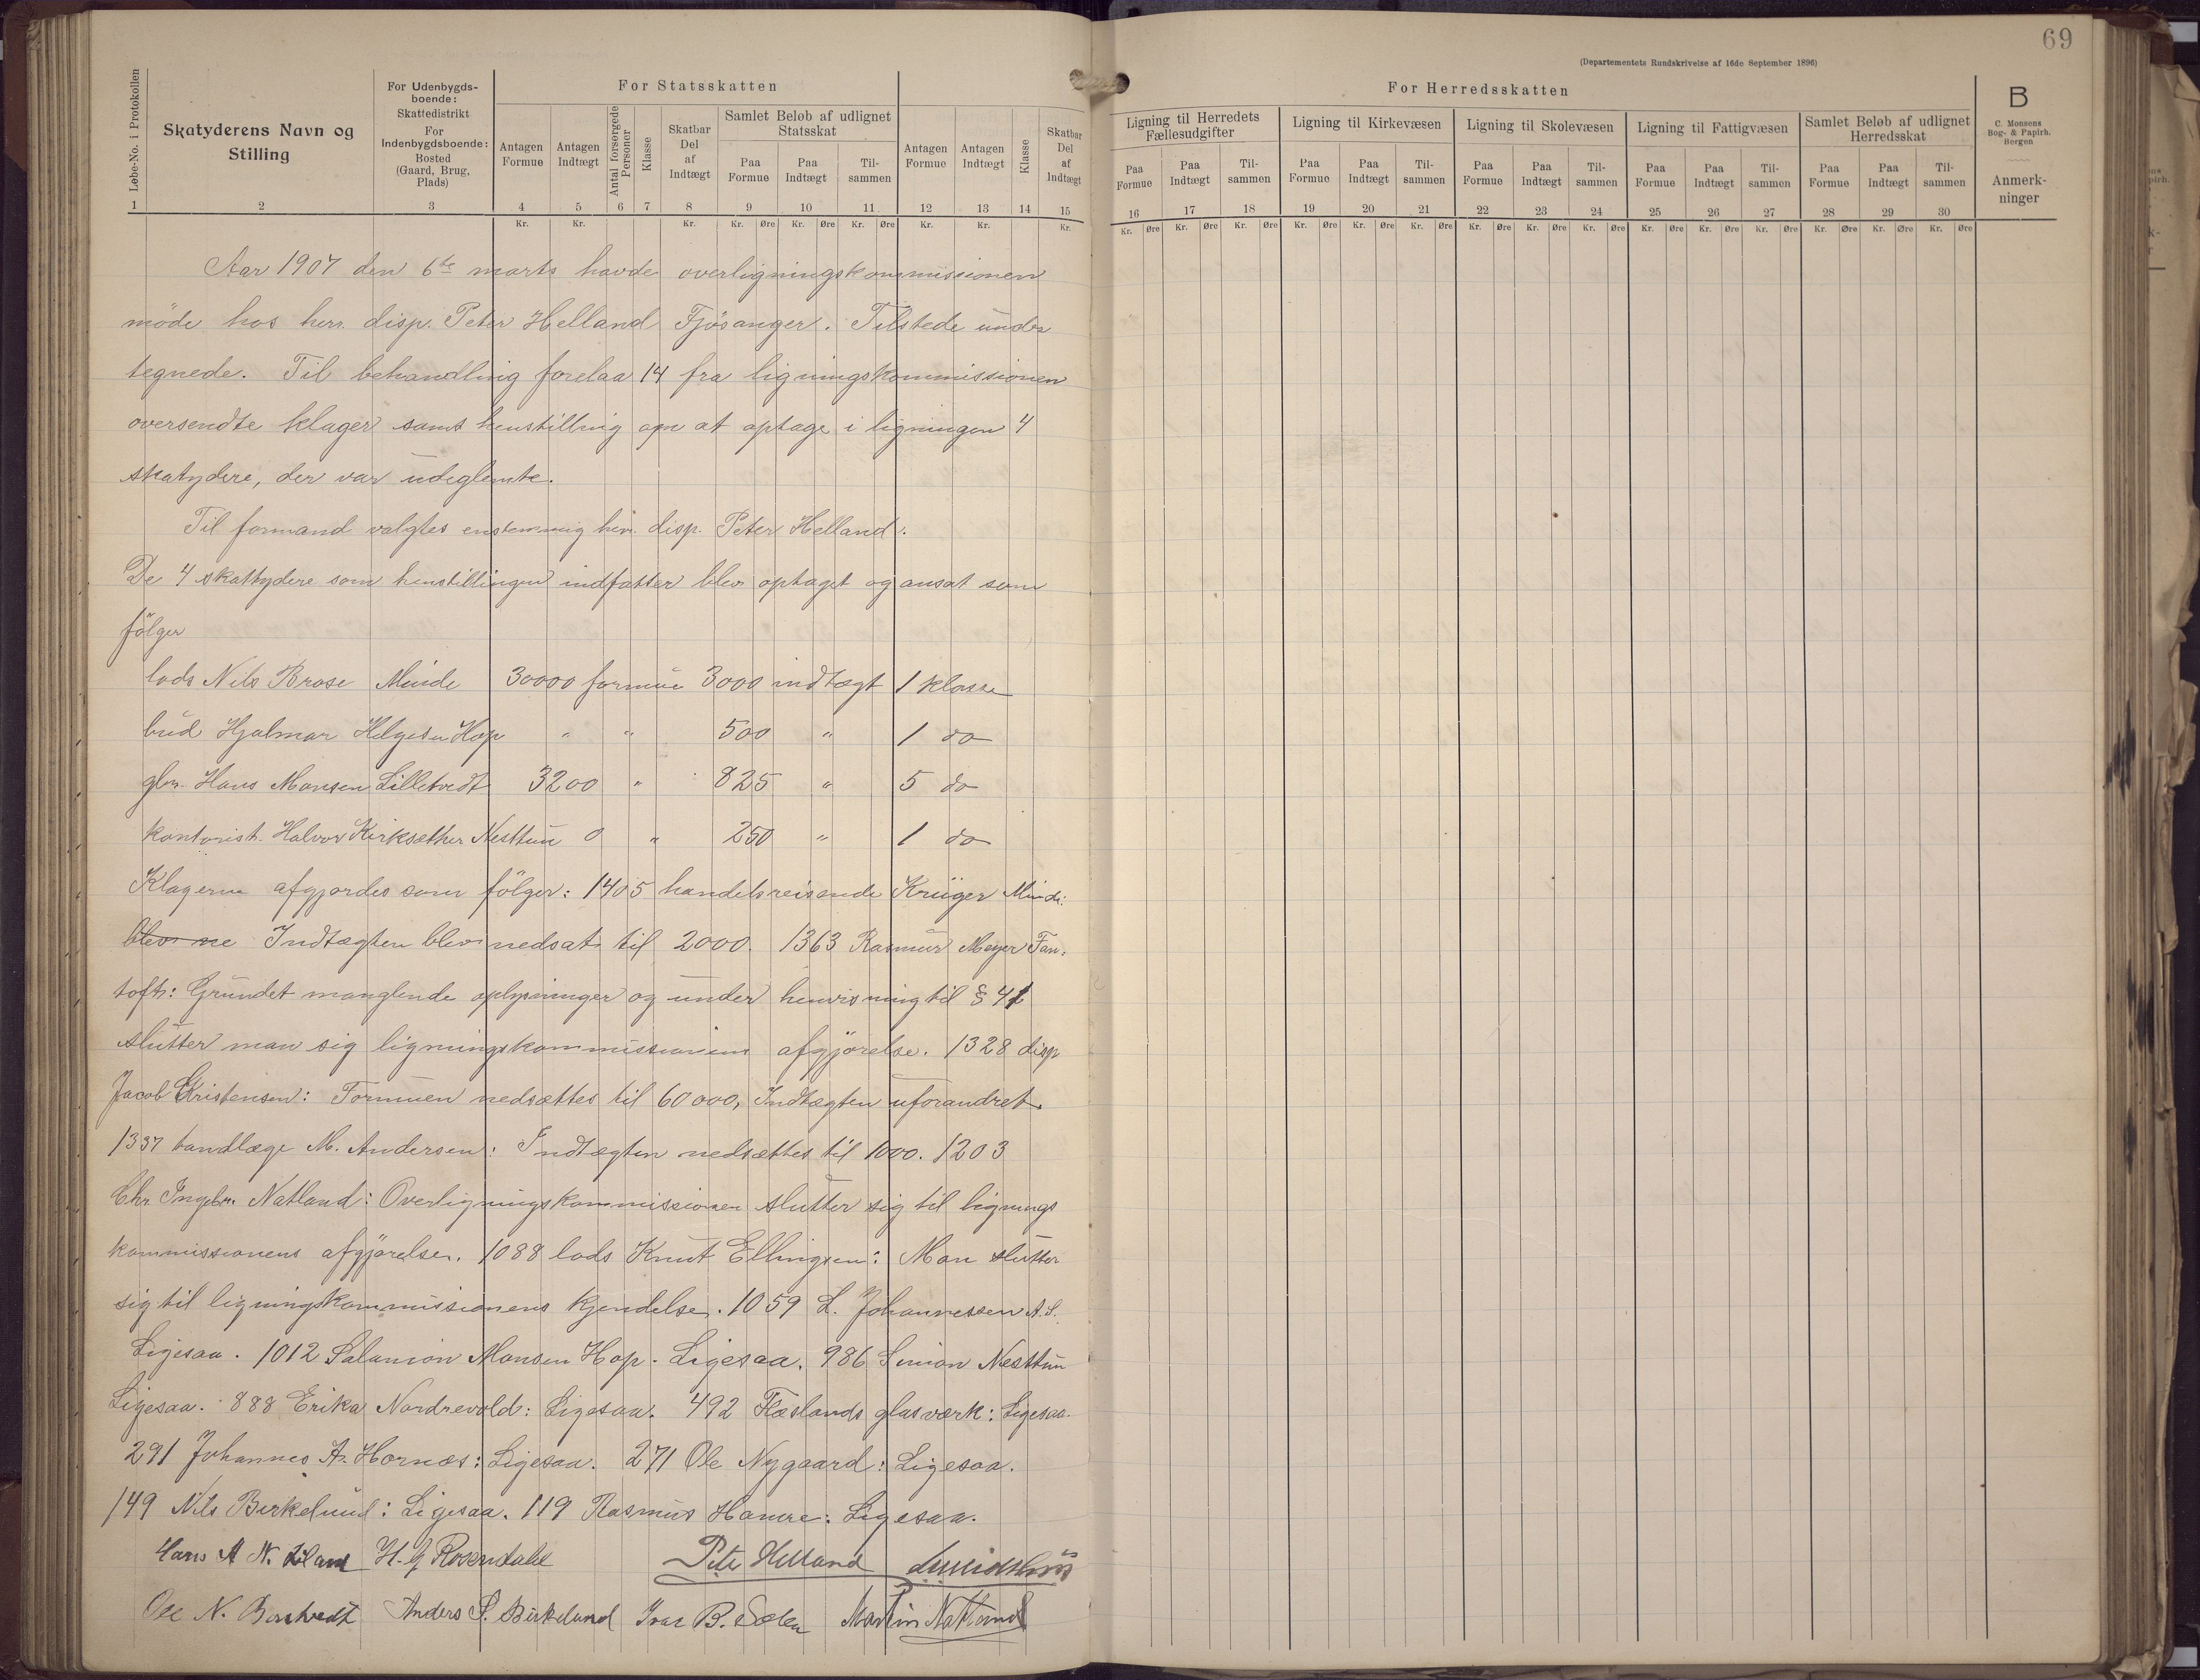 69
(Departementets Rundskrivelse af 16de September 1896)
Løbe-No. i Protokollen
Skatyderens Navn og Stilling
For Udenbygdsboende: Skattedistrikt For Indenbygdsboende: Bosted (Gaard, Brug, Plads)
For Statsskatten
Antagen Formue
Antagen Indtægt
Antal forsørgede Personer
Klasse
Skatbar Del af Indtægt
Samlet Beløb af udlignet Statsskat
Paa Formue
Paa Indtægt
Tilsammen
Antagen Formue
Antagen Indtægt
Klasse
Skatbar Del af Indtægt
For Herredsskatten
Ligning til Herredets Fællesudgifter
Paa Formue Paa Indtægt Tilsammen
Ligning til Kirkevæsen
Paa Formue Paa Indtægt Tilsammen
Ligning til Skolevæsen
Paa Formue Paa Indtægt Tilsammen
Ligning til Fattigvæsen
Paa Formue Paa Indtægt Tilsammen
Samlet Beløb af udlignet Herredsskat
Paa Formue Paa Indtægt Tilsammen
B
C. Monsens Bog- & Papirh. Bergen
Anmerkninger
1 2 3 4 5 6 7 8 9 10 11 12 13 14 15 16 17 18 19 20 21 22 23 24 25 26 27 28 29 30
Kr. Kr. Kr. Kr. Øre Kr. Øre Kr. Øre Kr. Kr. Kr. Kr. Øre Kr. Øre Kr. Øre Kr. Øre Kr. Øre Kr. Øre Kr. Øre Kr. Øre Kr. Øre Kr. Øre Kr. Øre Kr. Øre Kr. Øre Kr. Øre Kr. Øre
Aar 1907 den 6te marts havde overligningskommissionen
møde hos herr. disp. Peter Helland Fjøsanger. Tilstede under
tegnede. Til behandling forelaa 14 fra ligningskommissionen
oversendte klager samt henstilling om at optage i ligningen 4
skatydere, der var udeglemte.
Til formand valgtes enstemmig herr. disp. Peter Helland.
De 4 skattydere som henstillingen indfatter blev optaget og ansat som
følger
lods Nils Brose Minde 30000 formue 3000 indtægt 1 klasse
bud Hjalmar Helgesen Hop " " 500 " 1 do
gbr. Hans Monsen Lilletvedt 3200 " 825 " 5 do
kontorist. Halvor Kirksæther Nesttun 0 " 250 " 1 do
Klagerne afgjordes som følger: 1405 handelsreisende Krüger Minde:
blev ne Indtægten blev nedsat til 2000. 1363 Rasmus Meyer Fan-
toft: Grundet manglende oplysninger og under henvisning til § 41
slutter man sig ligningskommissionens afgjørelse. 1328 disp
Jacob Kristensen: Formuen nedsættes til 60000, Indtægten uforandret.
1337 tandlæge M. Andersen: Indtægten nedsættes til 1000. 1203
Chr. Ingebr. Natland: Overligningskommissionen slutter sig til lignings
kommissionens afgjørelse. 1088 lods Knut Ellingsen: Man slutter
sig til ligningskommissionens kjendelse. 1059 L. Johannessen A.S.
Ligesaa. 1012 Salamon Monsen Hop. Ligesaa. 986 Simon Nesttun
Ligesaa. 888 Erika Nordrevold: Ligesaa. 492 Flæslands glasværk: Ligesaa.
291 Johannes A. Hornæs: Ligesaa. 271 Ole Nygaard: Ligesaa.
149 Nils Birkelund: Ligesaa. 119 Rasmus Hamre: Ligesaa.
Hans A N. H. G Rosendahl Peter Helland
Ole N. Anders S. Birkelund Ivar B. Sælen Martin Natland